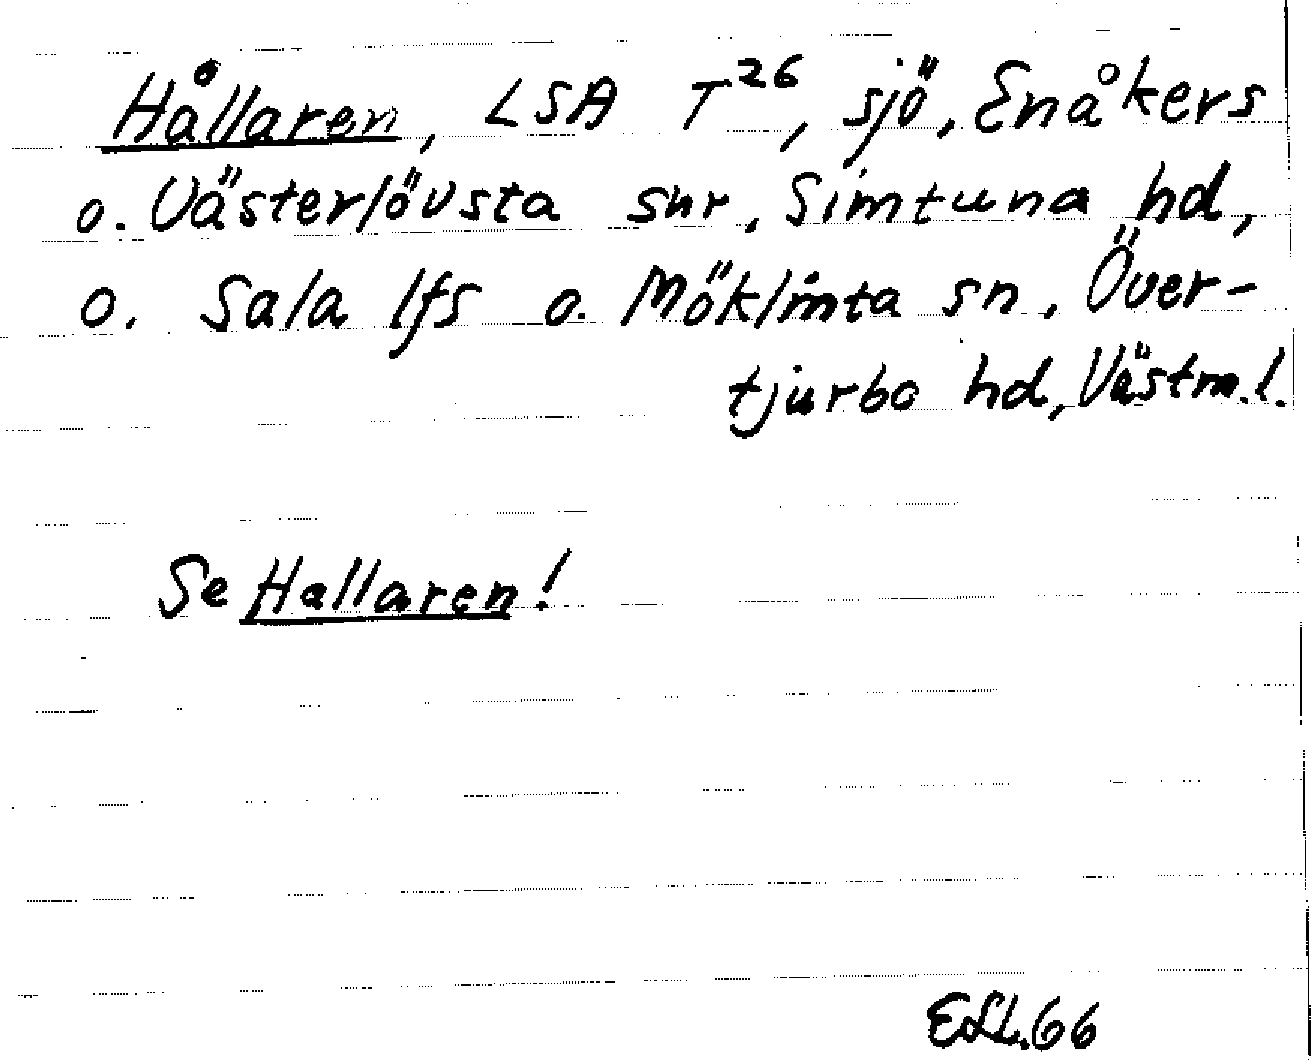 Hållaren, LSA T26, sjö, Enåkers
o. Västerlövsta snr, Simtuna hd,
o. Sala lfs o. Möklinta sn, Över-
tjurbo hd, Västm.l.
Se Hallaren!